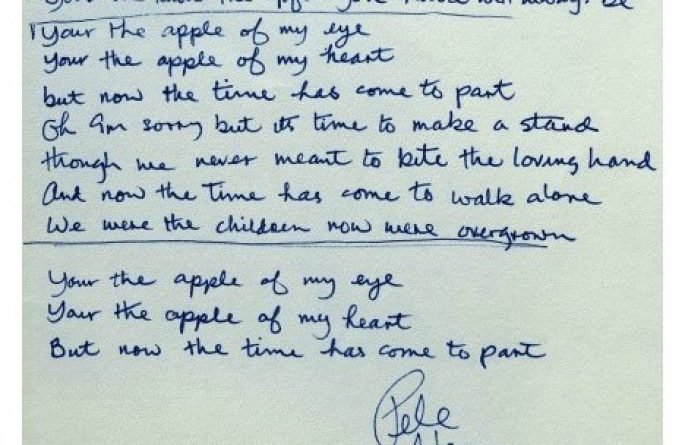 Your the apple of my eye
Your the apple of my heart
but now the time has come to part
Oh Im sorry but its time to make a stand
though we never meant to bite the loving hand
And now the time has come to walk alone
We were the children now were overgrown
Your the apple of my eye
Your the apple of my heart
But now the time has come to part
Pete